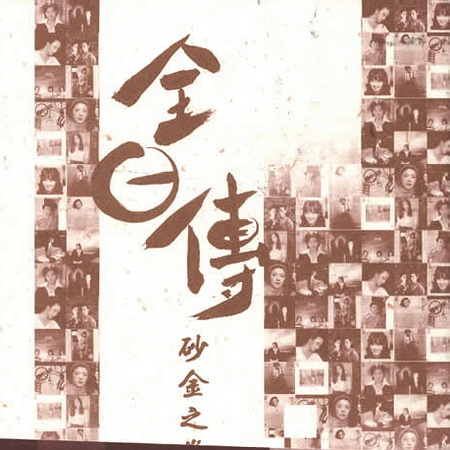 全日傳
砂金之